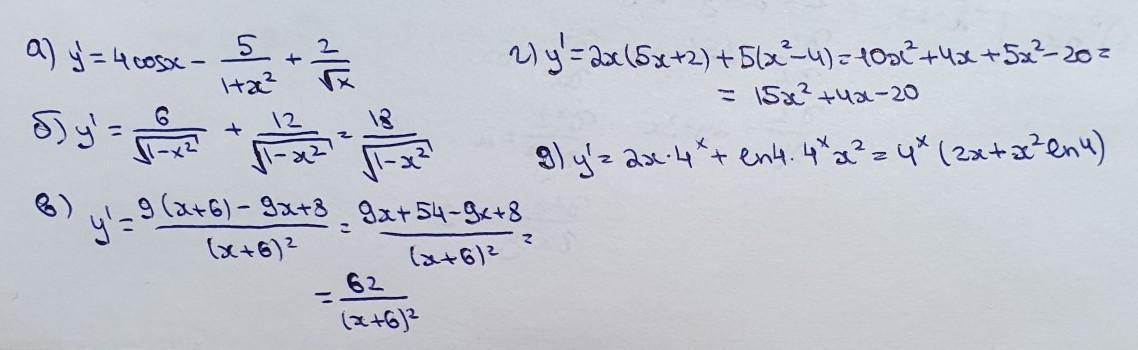 а) y' = 4cosx - 5/(1+x²) + 2/√x
б) y' = 6/√(1-x²) + 12/√(1-x²) = 18/√(1-x²)
в) y' = (9(x+6) - 9x+8)/(x+6)² = (9x+54-9x+8)/(x+6)² =
= 62/(x+6)²
г) y' = 2x(5x+2) + 5(x²-4) = 10x²+4x+5x²-20 =
= 15x²+4x-20
д) y' = 2x·4ˣ + ln4·4ˣx² = 4ˣ(2x+x²ln4)